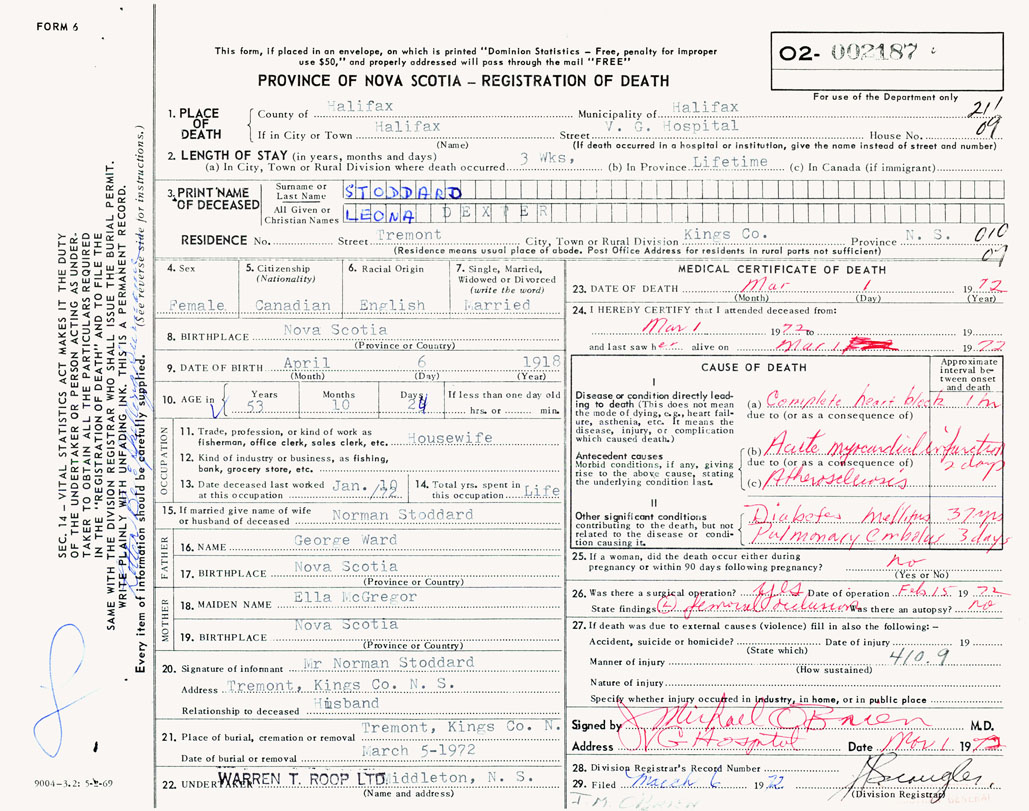 FORM 6
This form, if placed in an envelope, on which is printed "Dominion Statistics – Free, penalty for improper
use $50," and properly addressed will pass through the mail "FREE"
PROVINCE OF NOVA SCOTIA – REGISTRATION OF DEATH
02- 002187
For use of the Department only
211
09
1. PLACE OF DEATH
County of Halifax Municipality of Halifax
If in City or Town Halifax Street V. G. Hospital House No.
(Name) (If death occurred in a hospital or institution, give the name instead of street and number)
2. LENGTH OF STAY (in years, months and days)
(a) In City, Town or Rural Division where death occurred 3 Wks, (b) In Province Lifetime (c) In Canada (if immigrant)
3. PRINT NAME OF DECEASED
Surname or Last Name STODDARD
All Given or Christian Names LEONA DEXTER
RESIDENCE No. Street Tremont City, Town or Rural Division Kings Co. Province N. S.
(Residence means usual place of abode. Post Office Address for residents in rural parts not sufficient)
010
07
4. Sex Female
5. Citizenship (Nationality) Canadian
6. Racial Origin English
7. Single, Married, Widowed or Divorced (write the word) Married
8. BIRTHPLACE Nova Scotia
(Province or Country)
9. DATE OF BIRTH April 6 1918
(Month) (Day) (Year)
10. AGE in Years 53 Months 10 Days 24 If less than one day old hrs. or min.
OCCUPATION
11. Trade, profession, or kind of work as
fisherman, office clerk, sales clerk, etc. Housewife
12. Kind of industry or business, as fishing,
bank, grocery store, etc.
13. Date deceased last worked
at this occupation Jan. /72
14. Total yrs. spent in
this occupation Life
15. If married give name of wife
or husband of deceased Norman Stoddard
FATHER
16. NAME George Ward
17. BIRTHPLACE Nova Scotia
(Province or Country)
MOTHER
18. MAIDEN NAME Ella McGregor
19. BIRTHPLACE Nova Scotia
(Province or Country)
20. Signature of informant Mr Norman Stoddard
Address Tremont, Kings Co. N. S.
Relationship to deceased Husband
21. Place of burial, cremation or removal Tremont, Kings Co. N.
Date of burial or removal March 5-1972
22. UNDERTAKER WARREN T. ROOP LTD Middleton, N. S.
(Name and address)
MEDICAL CERTIFICATE OF DEATH
23. DATE OF DEATH Mar 1 1972
(Month) (Day) (Year)
24. I HEREBY CERTIFY that I attended deceased from:
Mar 1 1972 to 19
and last saw her alive on Mar 1 1972
CAUSE OF DEATH
Approximate interval between onset and death
I
Disease or condition directly leading to death (This does not mean the mode of dying, e.g., heart failure, asthenia, etc. It means the disease, injury, or complication which caused death.)
(a) Complete heart block
due to (or as a consequence of)
Antecedent causes
Morbid conditions, if any, giving rise to the above cause, stating the underlying condition last.
(b) Acute myocardial infarction 2 days
due to (or as a consequence of)
(c) Atherosclerosis
II
Other significant conditions contributing to the death, but not related to the disease or condition causing it.
Diabetes Mellitus 37 yrs
Pulmonary Embolus 3 days
25. If a woman, did the death occur either during
pregnancy or within 90 days following pregnancy? no
(Yes or No)
26. Was there a surgical operation? yes Date of operation Feb 15 1972
State findings (L) femoral occlusion Was there an autopsy? no
27. If death was due to external causes (violence) fill in also the following: –
Accident, suicide or homicide? Date of injury 19
(State which)
Manner of injury 410.9
(How sustained)
Nature of injury
Specify whether injury occurred in industry, in home, or in public place
Signed by J. Michael O'Brien M.D.
Address VG Hospital Date Mar. 1 1972
28. Division Registrar's Record Number
29. Filed March 6 1972
(Division Registrar)
J. M. O'BRIEN
SEC. 14 – VITAL STATISTICS ACT MAKES IT THE DUTY
OF THE UNDERTAKER OR PERSON ACTING AS UNDER-
TAKER TO OBTAIN ALL THE PARTICULARS REQUIRED
IN THE "REGISTRATION OF DEATH" AND TO FILE THE
SAME WITH THE DIVISION REGISTRAR WHO SHALL ISSUE THE BURIAL PERMIT.
WRITE PLAINLY WITH UNFADING INK. THIS IS A PERMANENT RECORD.
Every item of information should be carefully supplied. (See reverse side for instructions.)
9004-3.2: 5-2-69